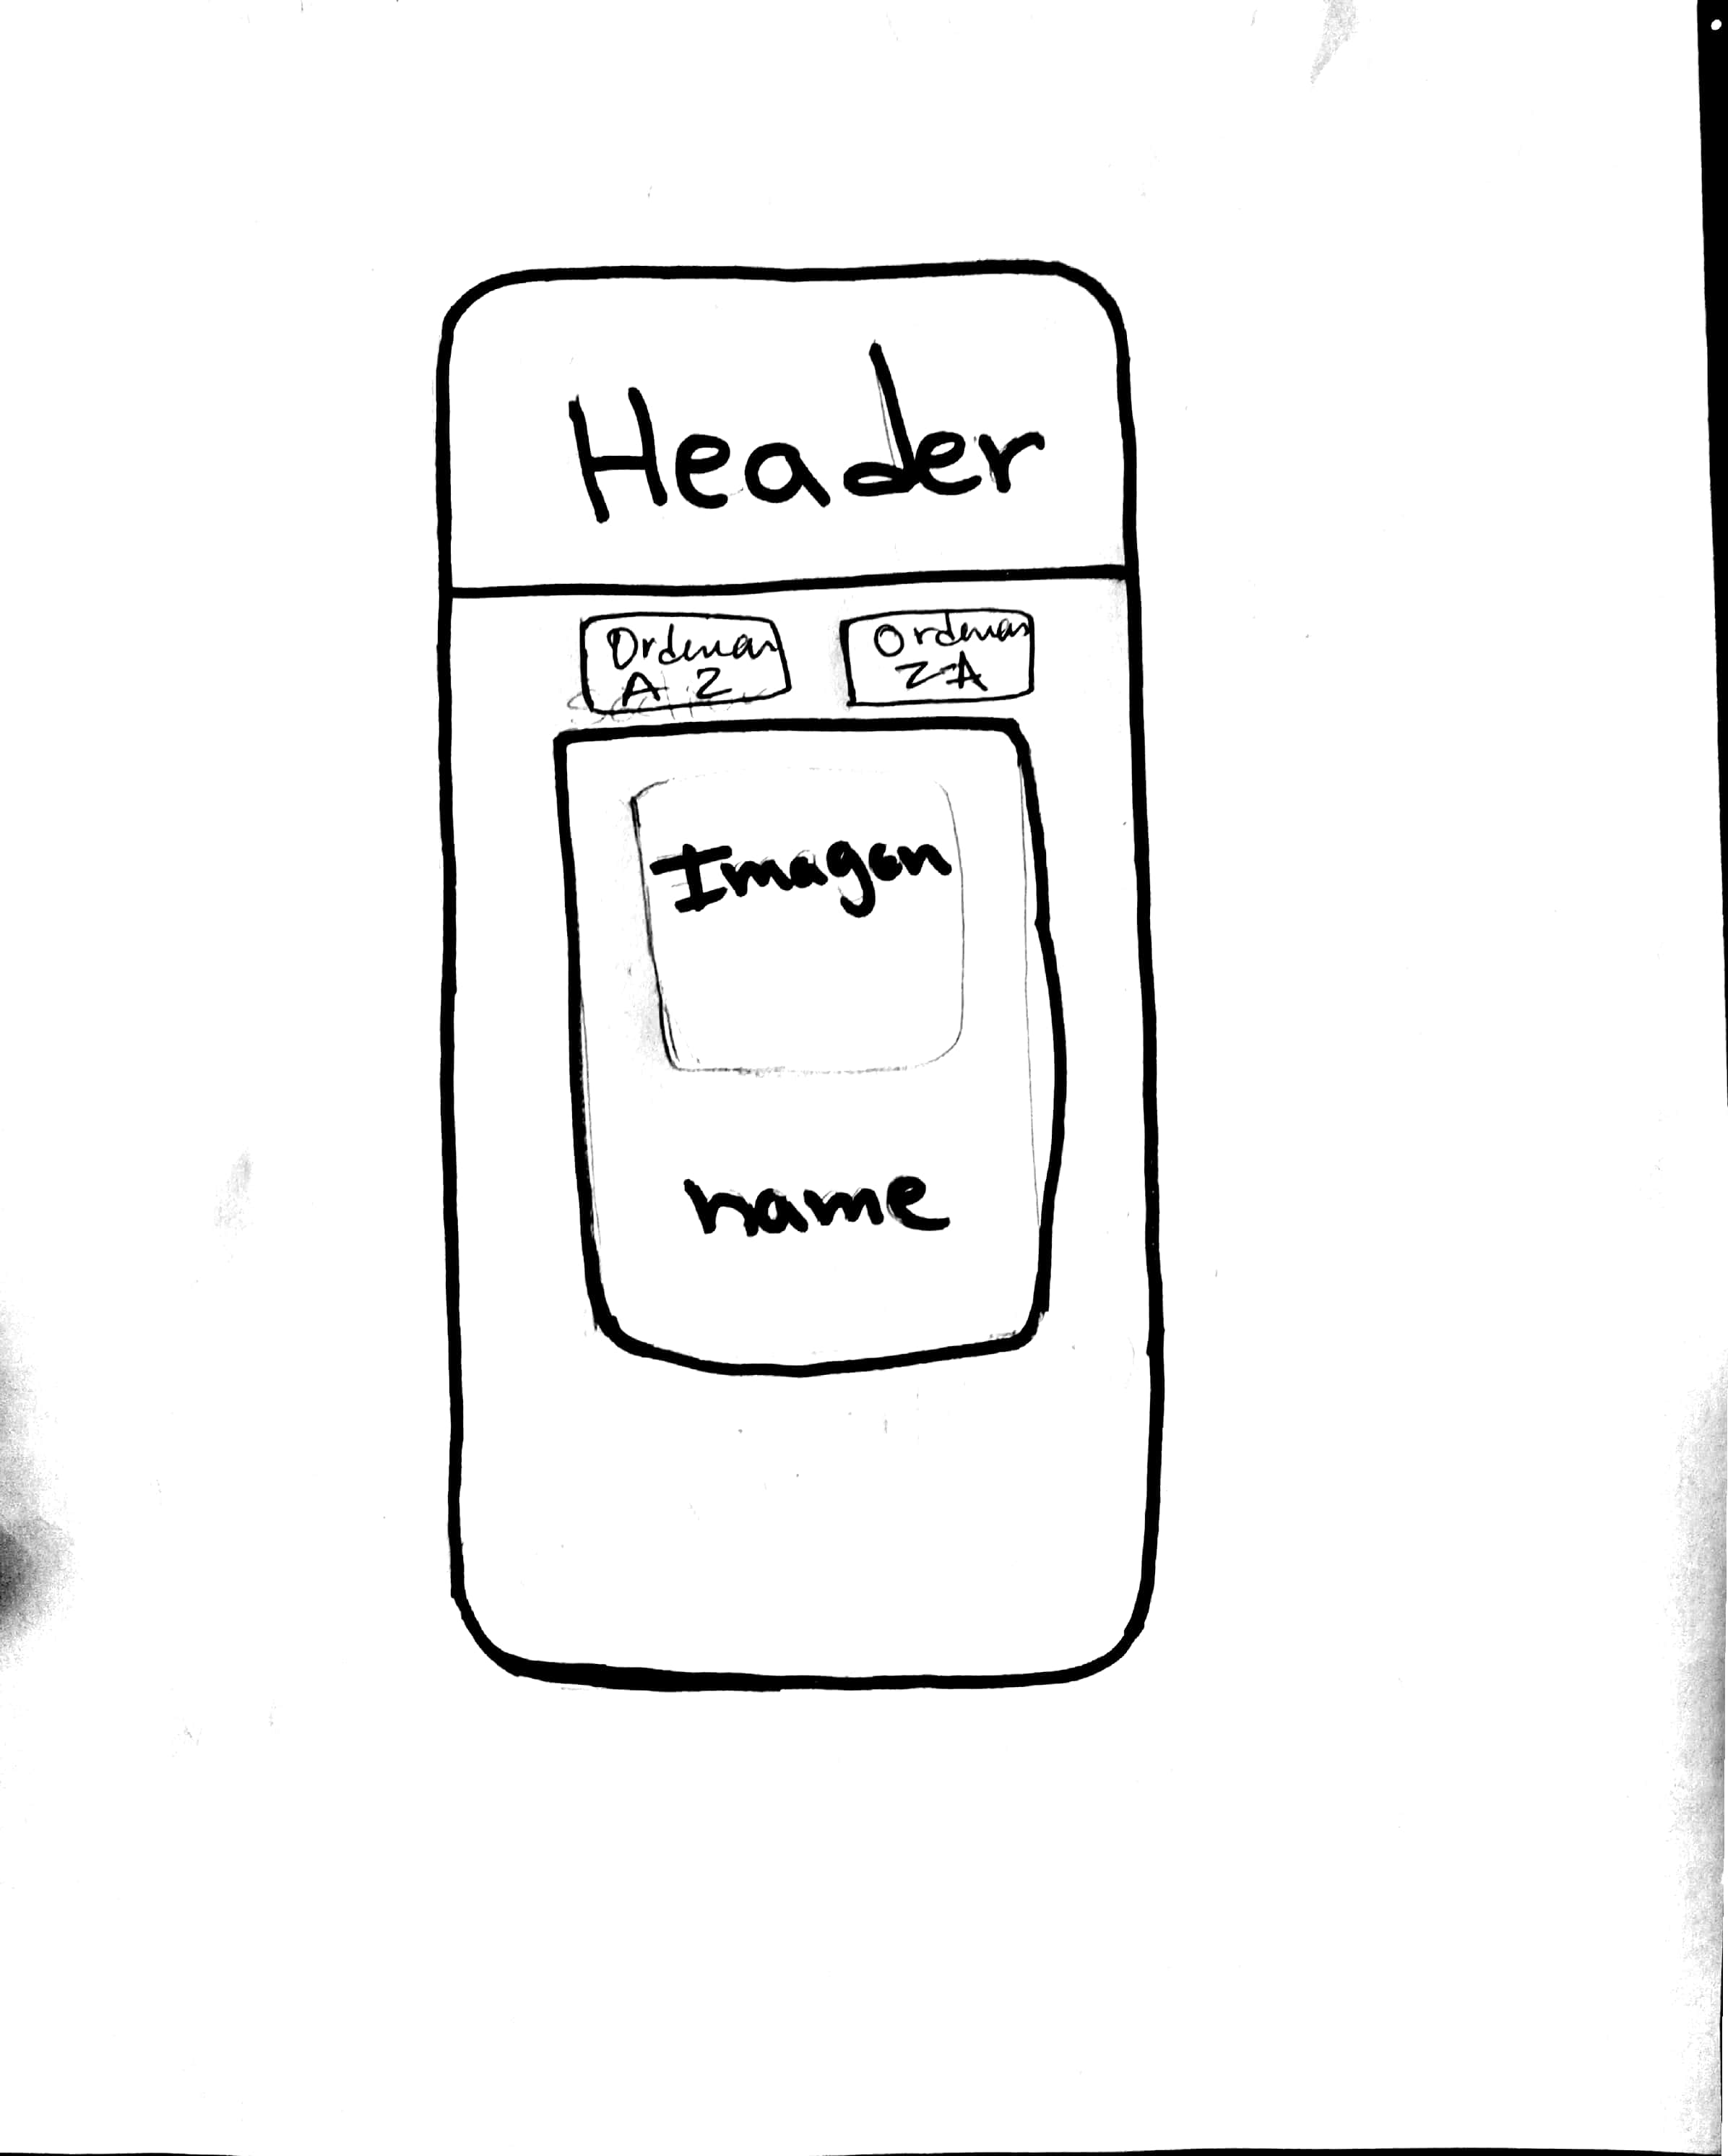 Header
Ordenar
A Z
Ordenar
Z A
Imagen
name